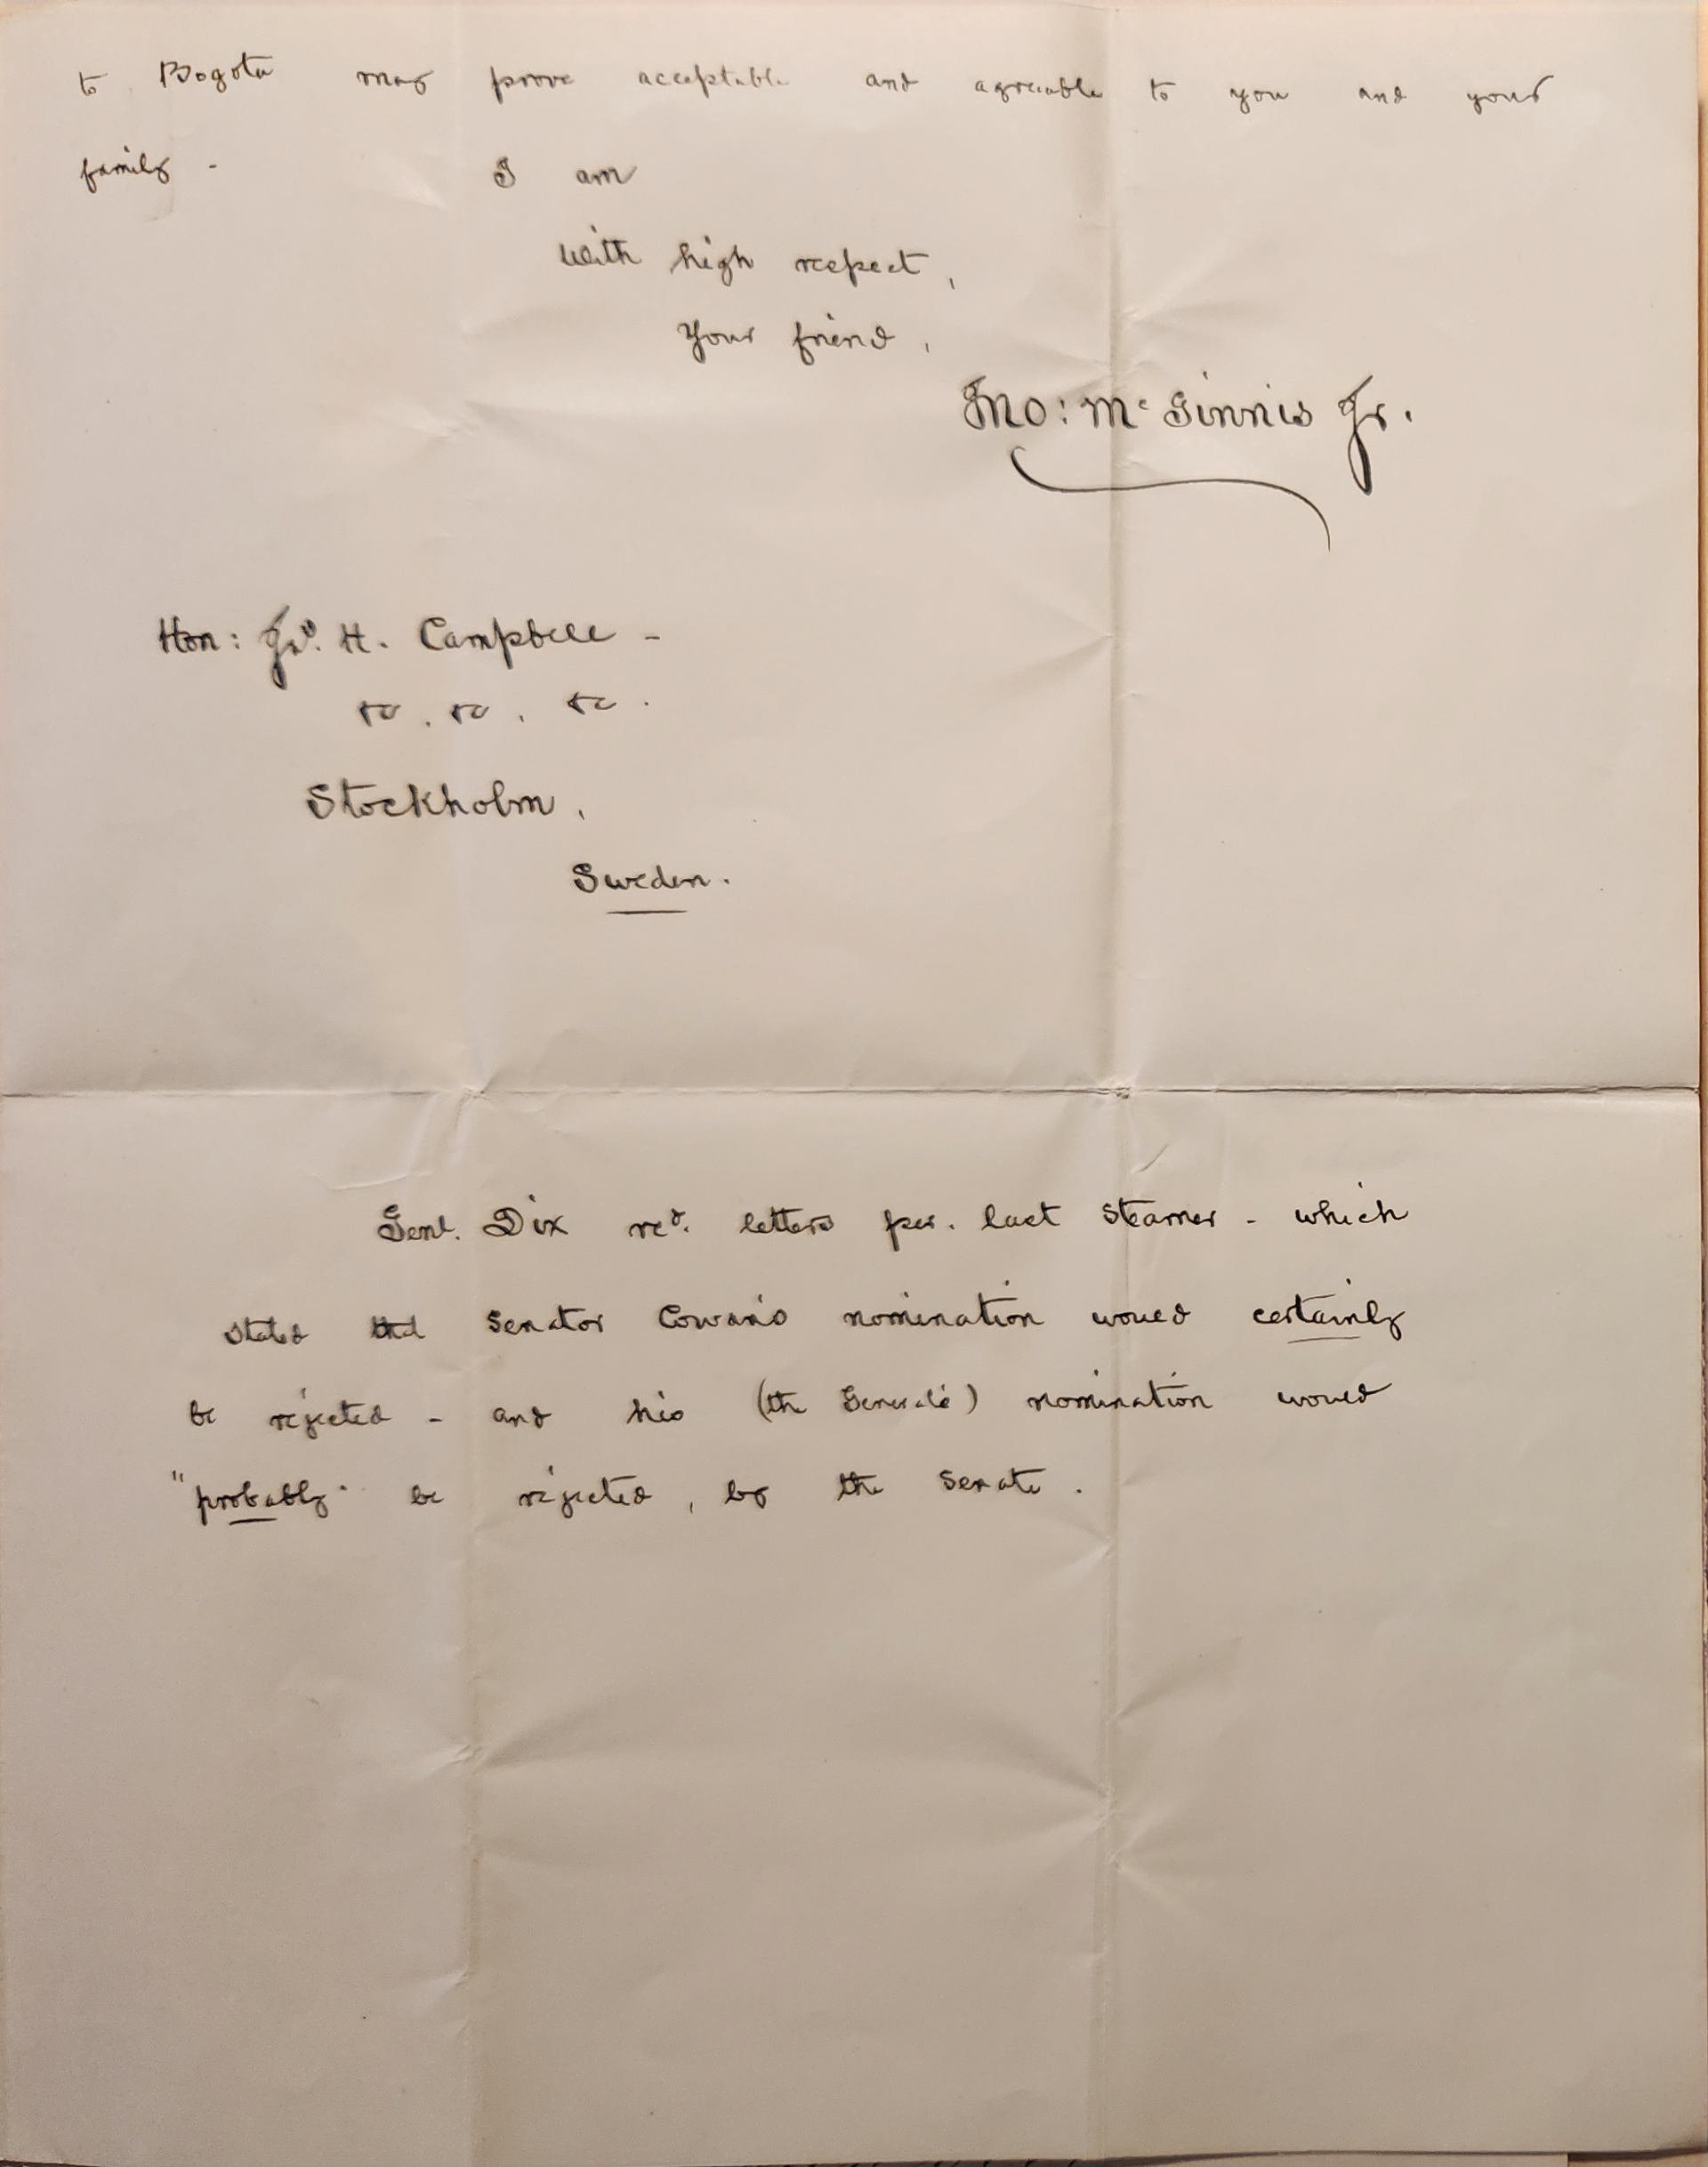 to Bogota may prove acceptable and agreeable to you and your
family -
I am
with high respect,
Your friend,
Jno: Mc Ginnis Jr.
Hon: Jas. H. Campbell -
&c. &c, &c.
Stockholm,
Sweden.
Genl. Dix recd. letters per. last steamer - which
stated that Senator Cowan's nomination would certainly
be rejected - and his (the General's) nomination would
"probably" be rejected, by the Senate.